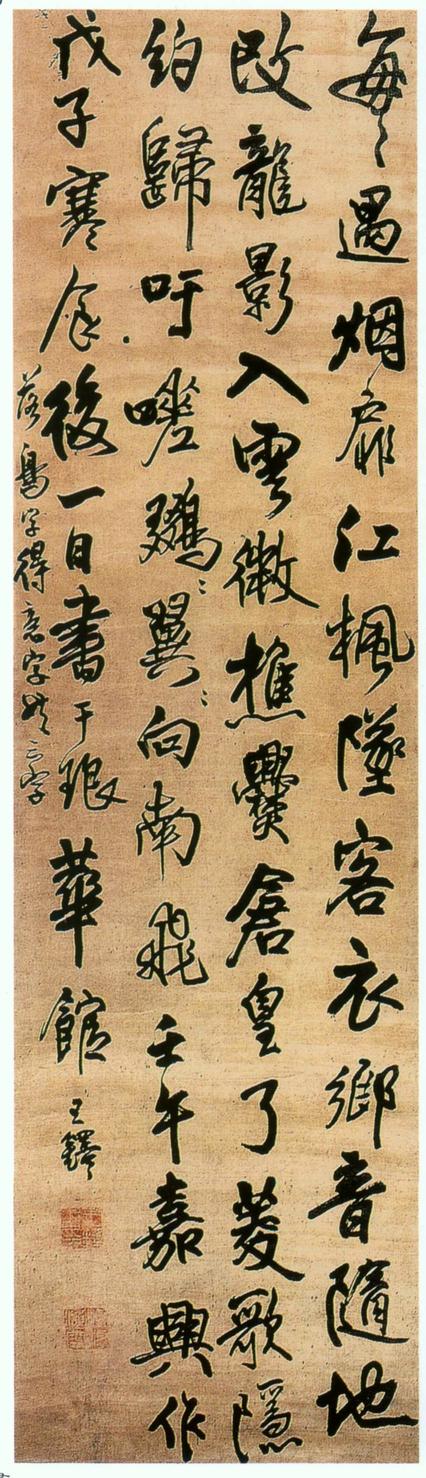 每〻遇烟扉江楓墜客衣鄉音隨地
改龍影入雲微樵爨倉皇了菱歌隱
約歸吁嗟〻翼〻向南飛壬午嘉興作
戊子寒食後一日書于琅華館 王鐸
落鳥字得意字